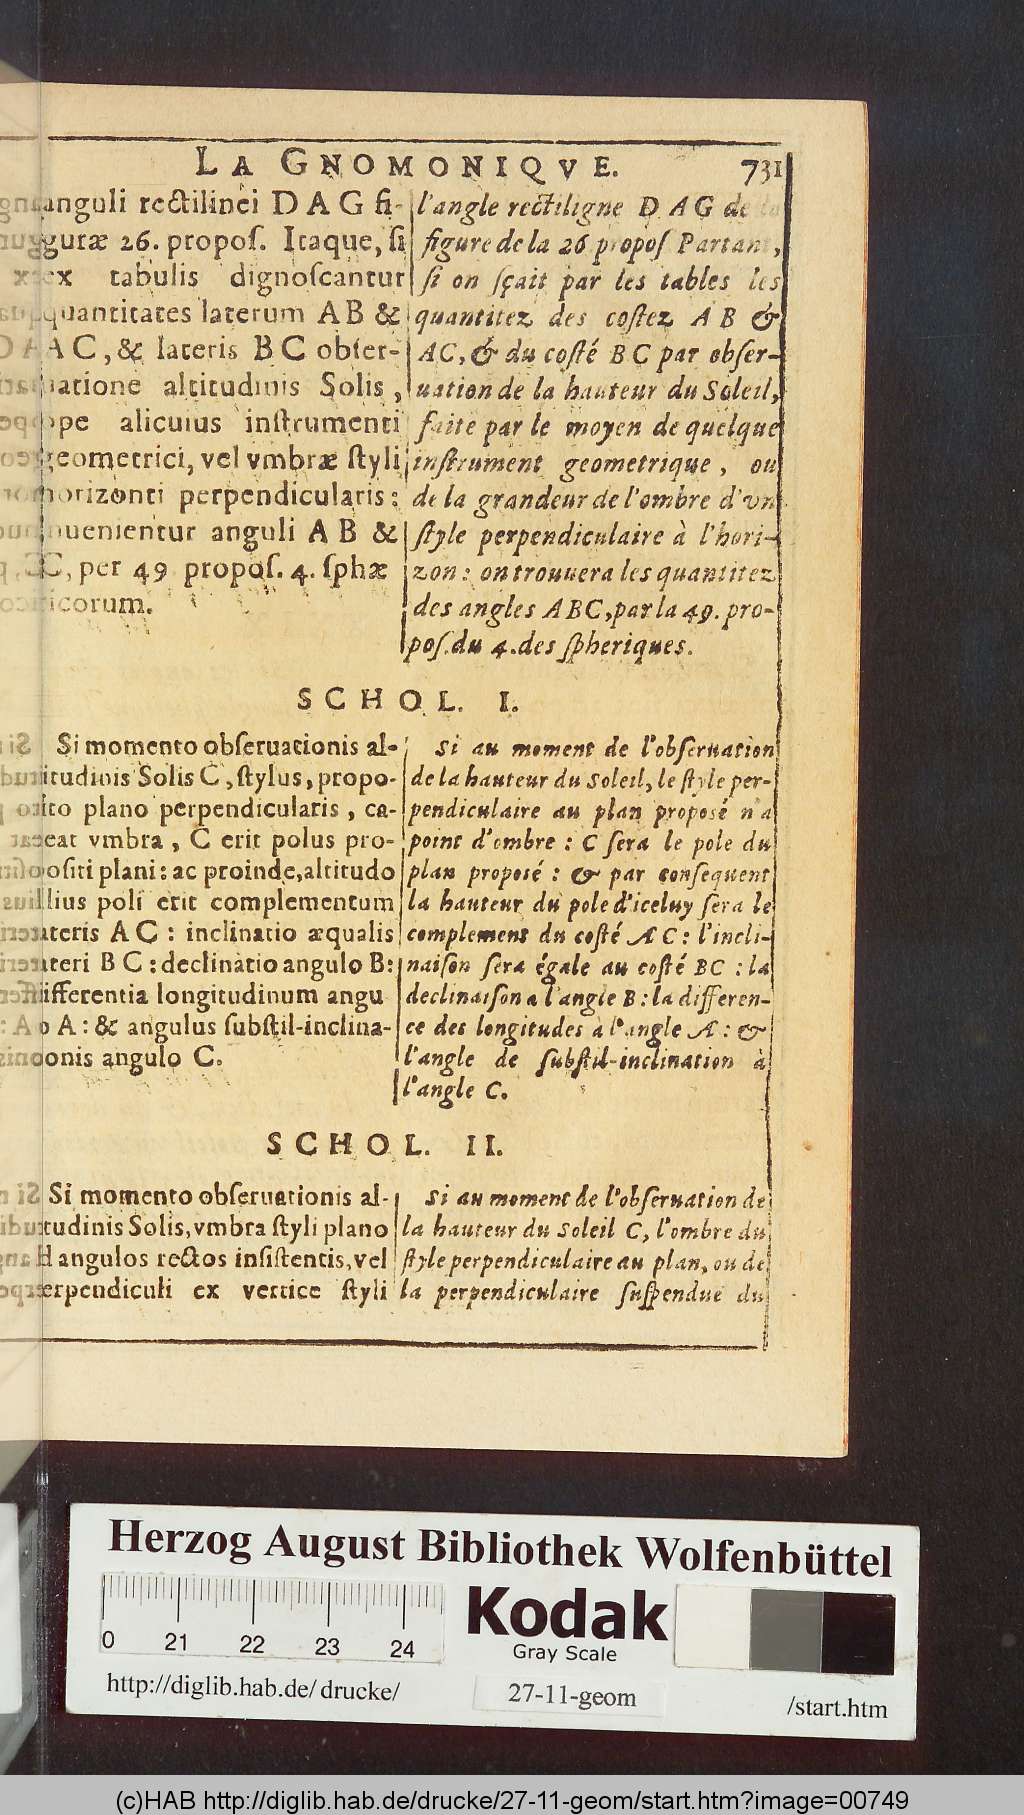 LA GNOMONIQVE. 731
anguli rectilinei DAG fi-
guræ 26. propoſ. Itaque, ſi
ex tabulis dignoſcantur
quantitates laterum AB &
AC, & lateris BC obſer-
uatione altitudinis Solis,
ope alicuius inſtrumenti
geometrici, vel vmbræ ſtyli
horizonti perpendicularis:
inuenientur anguli AB &
C, per 49 propoſ. 4. ſphæ
ricorum.
l'angle rectiligne DAG de la
figure de la 26 propoſ Partant,
ſi on ſçait par les tables les
quantitez des coſtez AB &
AC, & du coſté BC par obſer-
uation de la hauteur du Soleil,
faite par le moyen de quelque
inſtrument geometrique, ou
de la grandeur de l'ombre d'vn
ſtyle perpendiculaire à l'hori-
zon: on trouuera les quantitez
des angles ABC, par la 49. pro-
poſ. du 4. des ſpheriques.
SCHOL. I.
Si momento obſeruationis al-
titudinis Solis C, ſtylus, propo-
ſito plano perpendicularis, ca-
reat vmbra, C erit polus pro-
poſiti plani: ac proinde, altitudo
illius poli erit complementum
lateris AC: inclinatio æqualis
lateri BC: declinatio angulo B:
differentia longitudinum angu
lo A: & angulus ſubſtil-inclina-
tionis angulo C.
Si au moment de l'obſeruation
de la hauteur du Soleil, le ſtyle per-
pendiculaire au plan propoſé n'a
point d'ombre: C ſera le pole du
plan propoſé: & par conſequent
la hauteur du pole d'iceluy ſera le
complement du coſté AC: l'incli-
naiſon ſera égale au coſté BC: la
declinaiſon a l'angle B: la differen-
ce des longitudes à l'angle A: &
l'angle de ſubſtil-inclination à
l'angle C.
SCHOL. II.
Si momento obſeruationis al-
titudinis Solis, vmbra ſtyli plano
ad angulos rectos inſiſtentis, vel
perpendiculi ex vertice ſtyli
Si au moment de l'obſeruation de
la hauteur du Soleil C, l'ombre du
ſtyle perpendiculaire au plan, ou de
la perpendiculaire ſuſpendue du
Herzog August Bibliothek Wolfenbüttel
0 21 22 23 24
Kodak
Gray Scale
http://diglib.hab.de/drucke/
27-11-geom
/start.htm
(c)HAB http://diglib.hab.de/drucke/27-11-geom/start.htm?image=00749